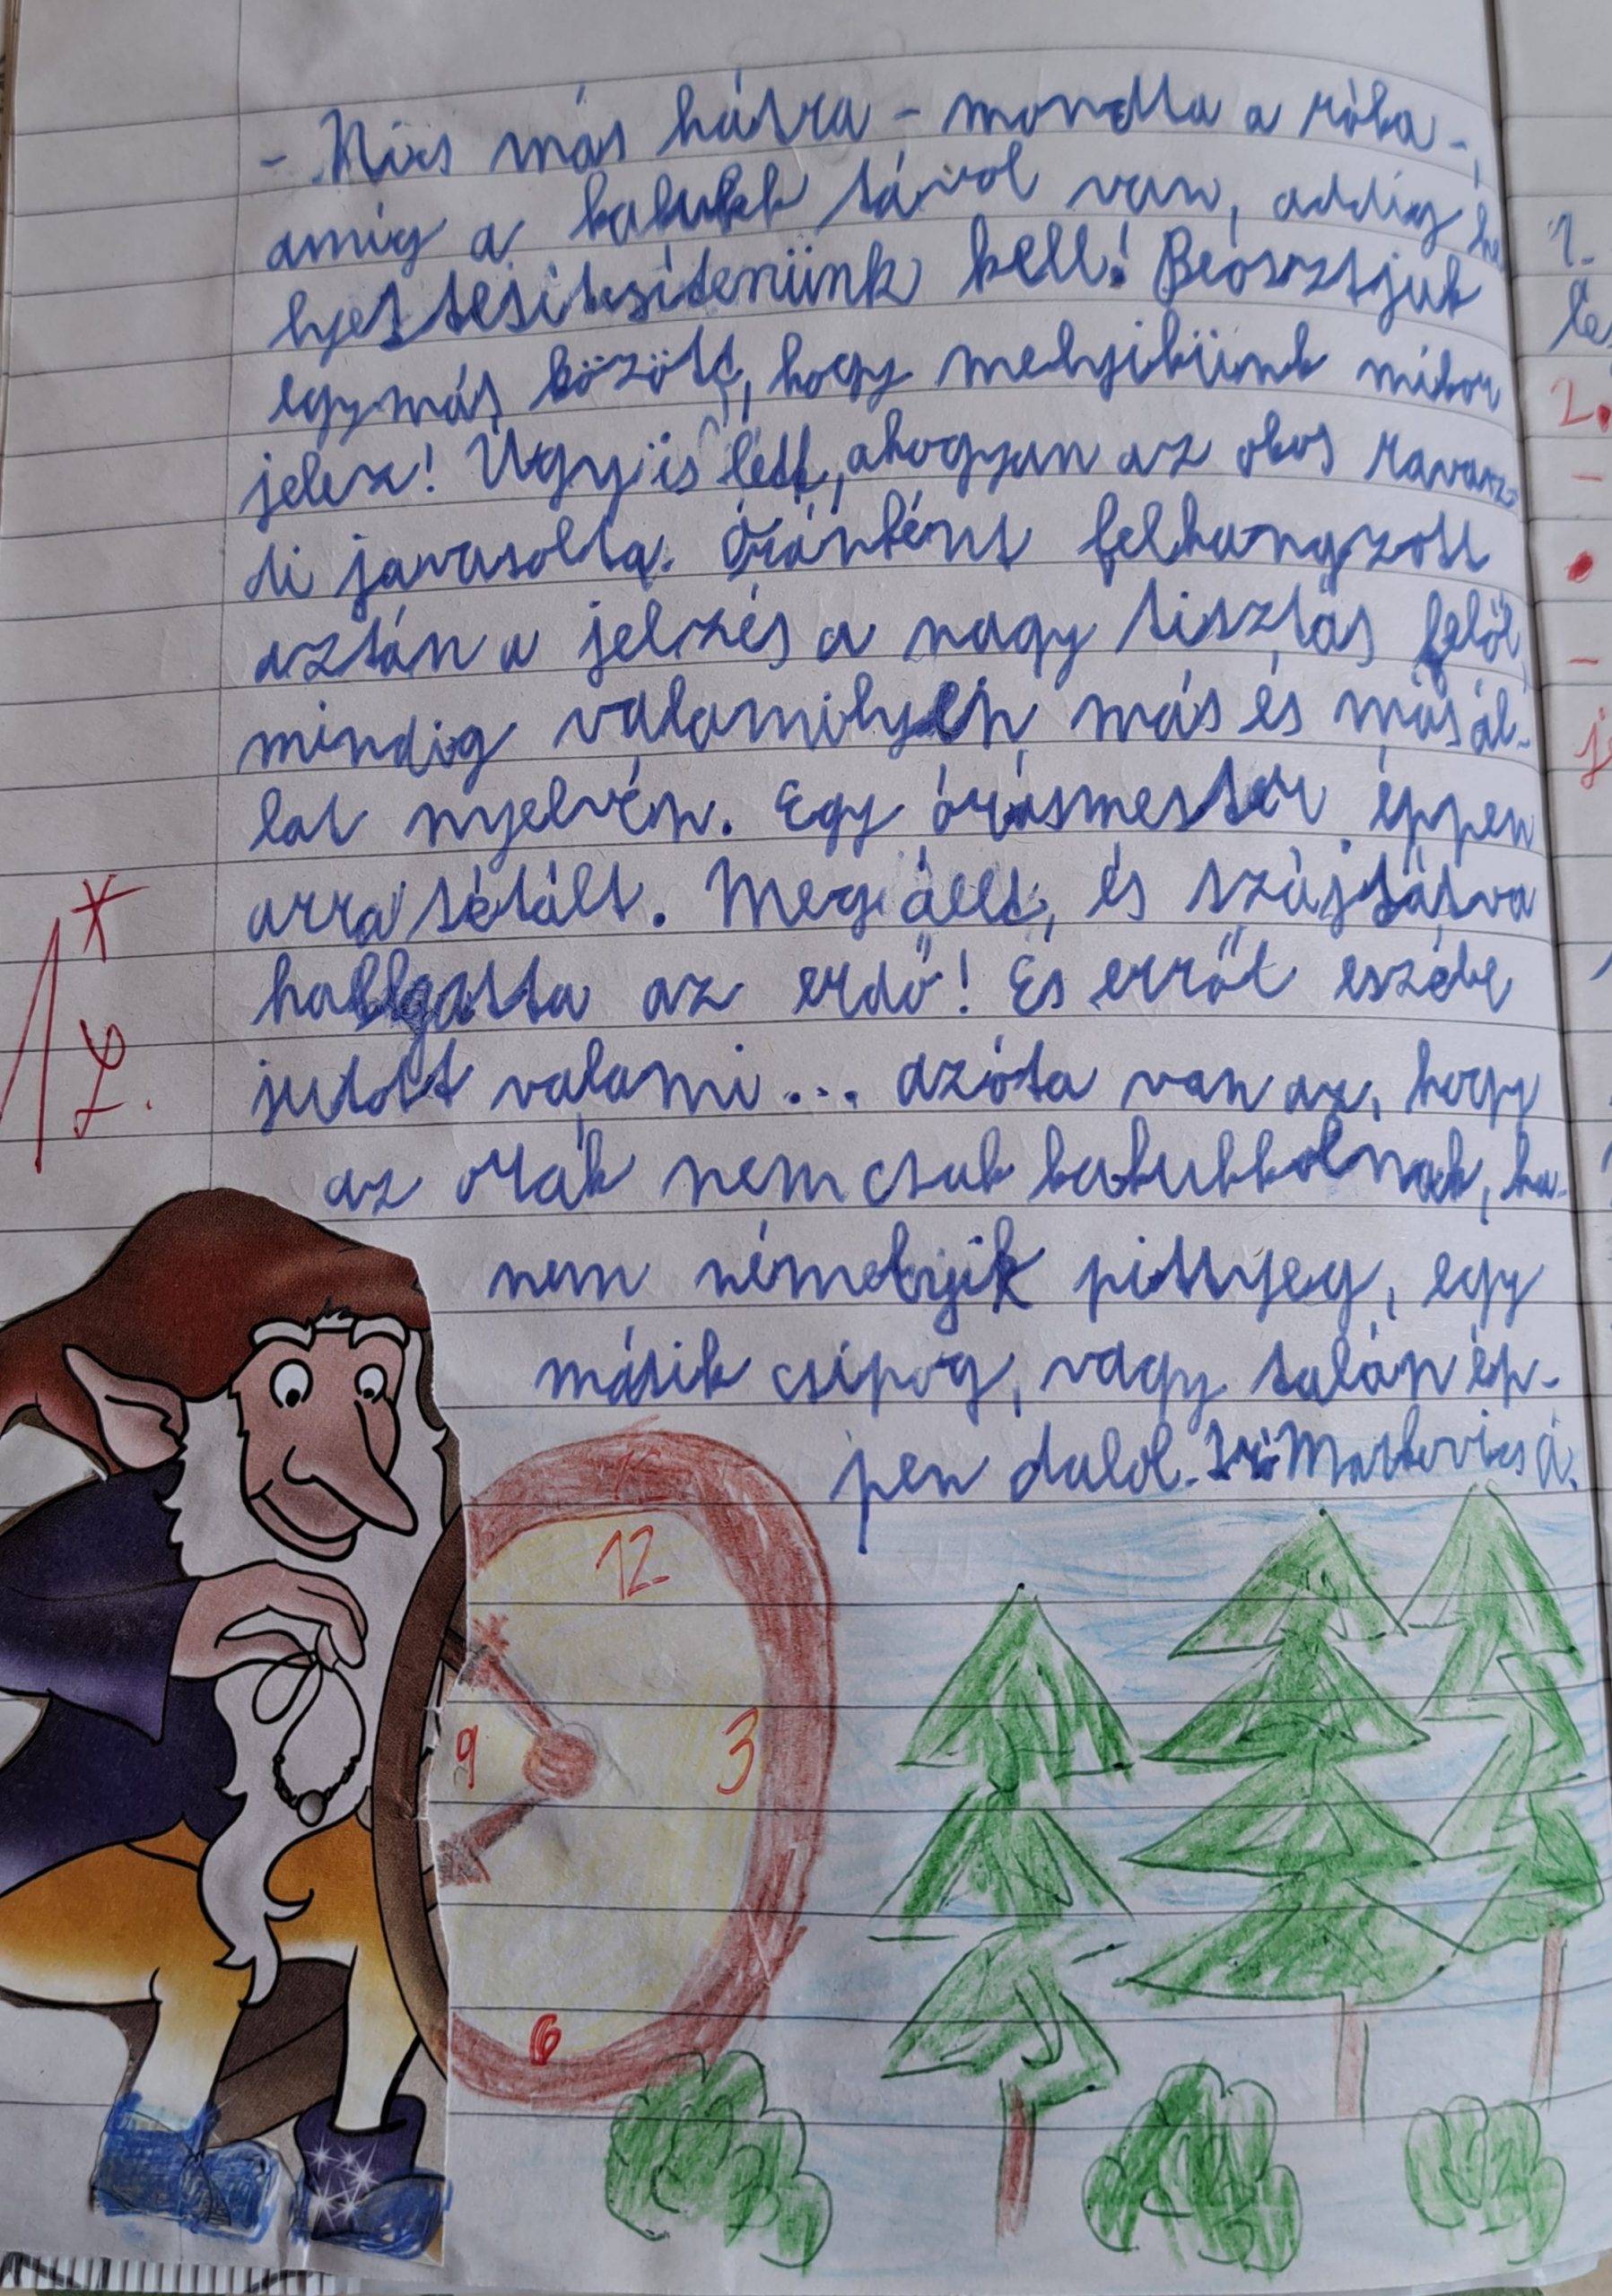 - Nincs más hátra - mondta a róka -,
amíg a kakukk távol van, addig he
lyettesítenünk kell! Beosztjuk
egymás között, hogy melyikünk mikor
jelez! Úgy is lett, ahogyan az okos ravasz
di javasolta. Óránként felhangzott
aztán a jelzés a nagy tisztás felől,
mindig valamilyen más és más ál-
lat nyelvén. Egy órásmester éppen
arra sétált. Megállt, és szájtátva
hallgatta az erdő! És erről eszébe
jutott valami... azóta van az, hogy
az órák nem csak kakukkolnak, ha-
nem némelyik pittyeg, egy
másik csipog, vagy talán ép-
pen dalol. Író: Markovics Á.
1*
12
9
3
6
1.
2.